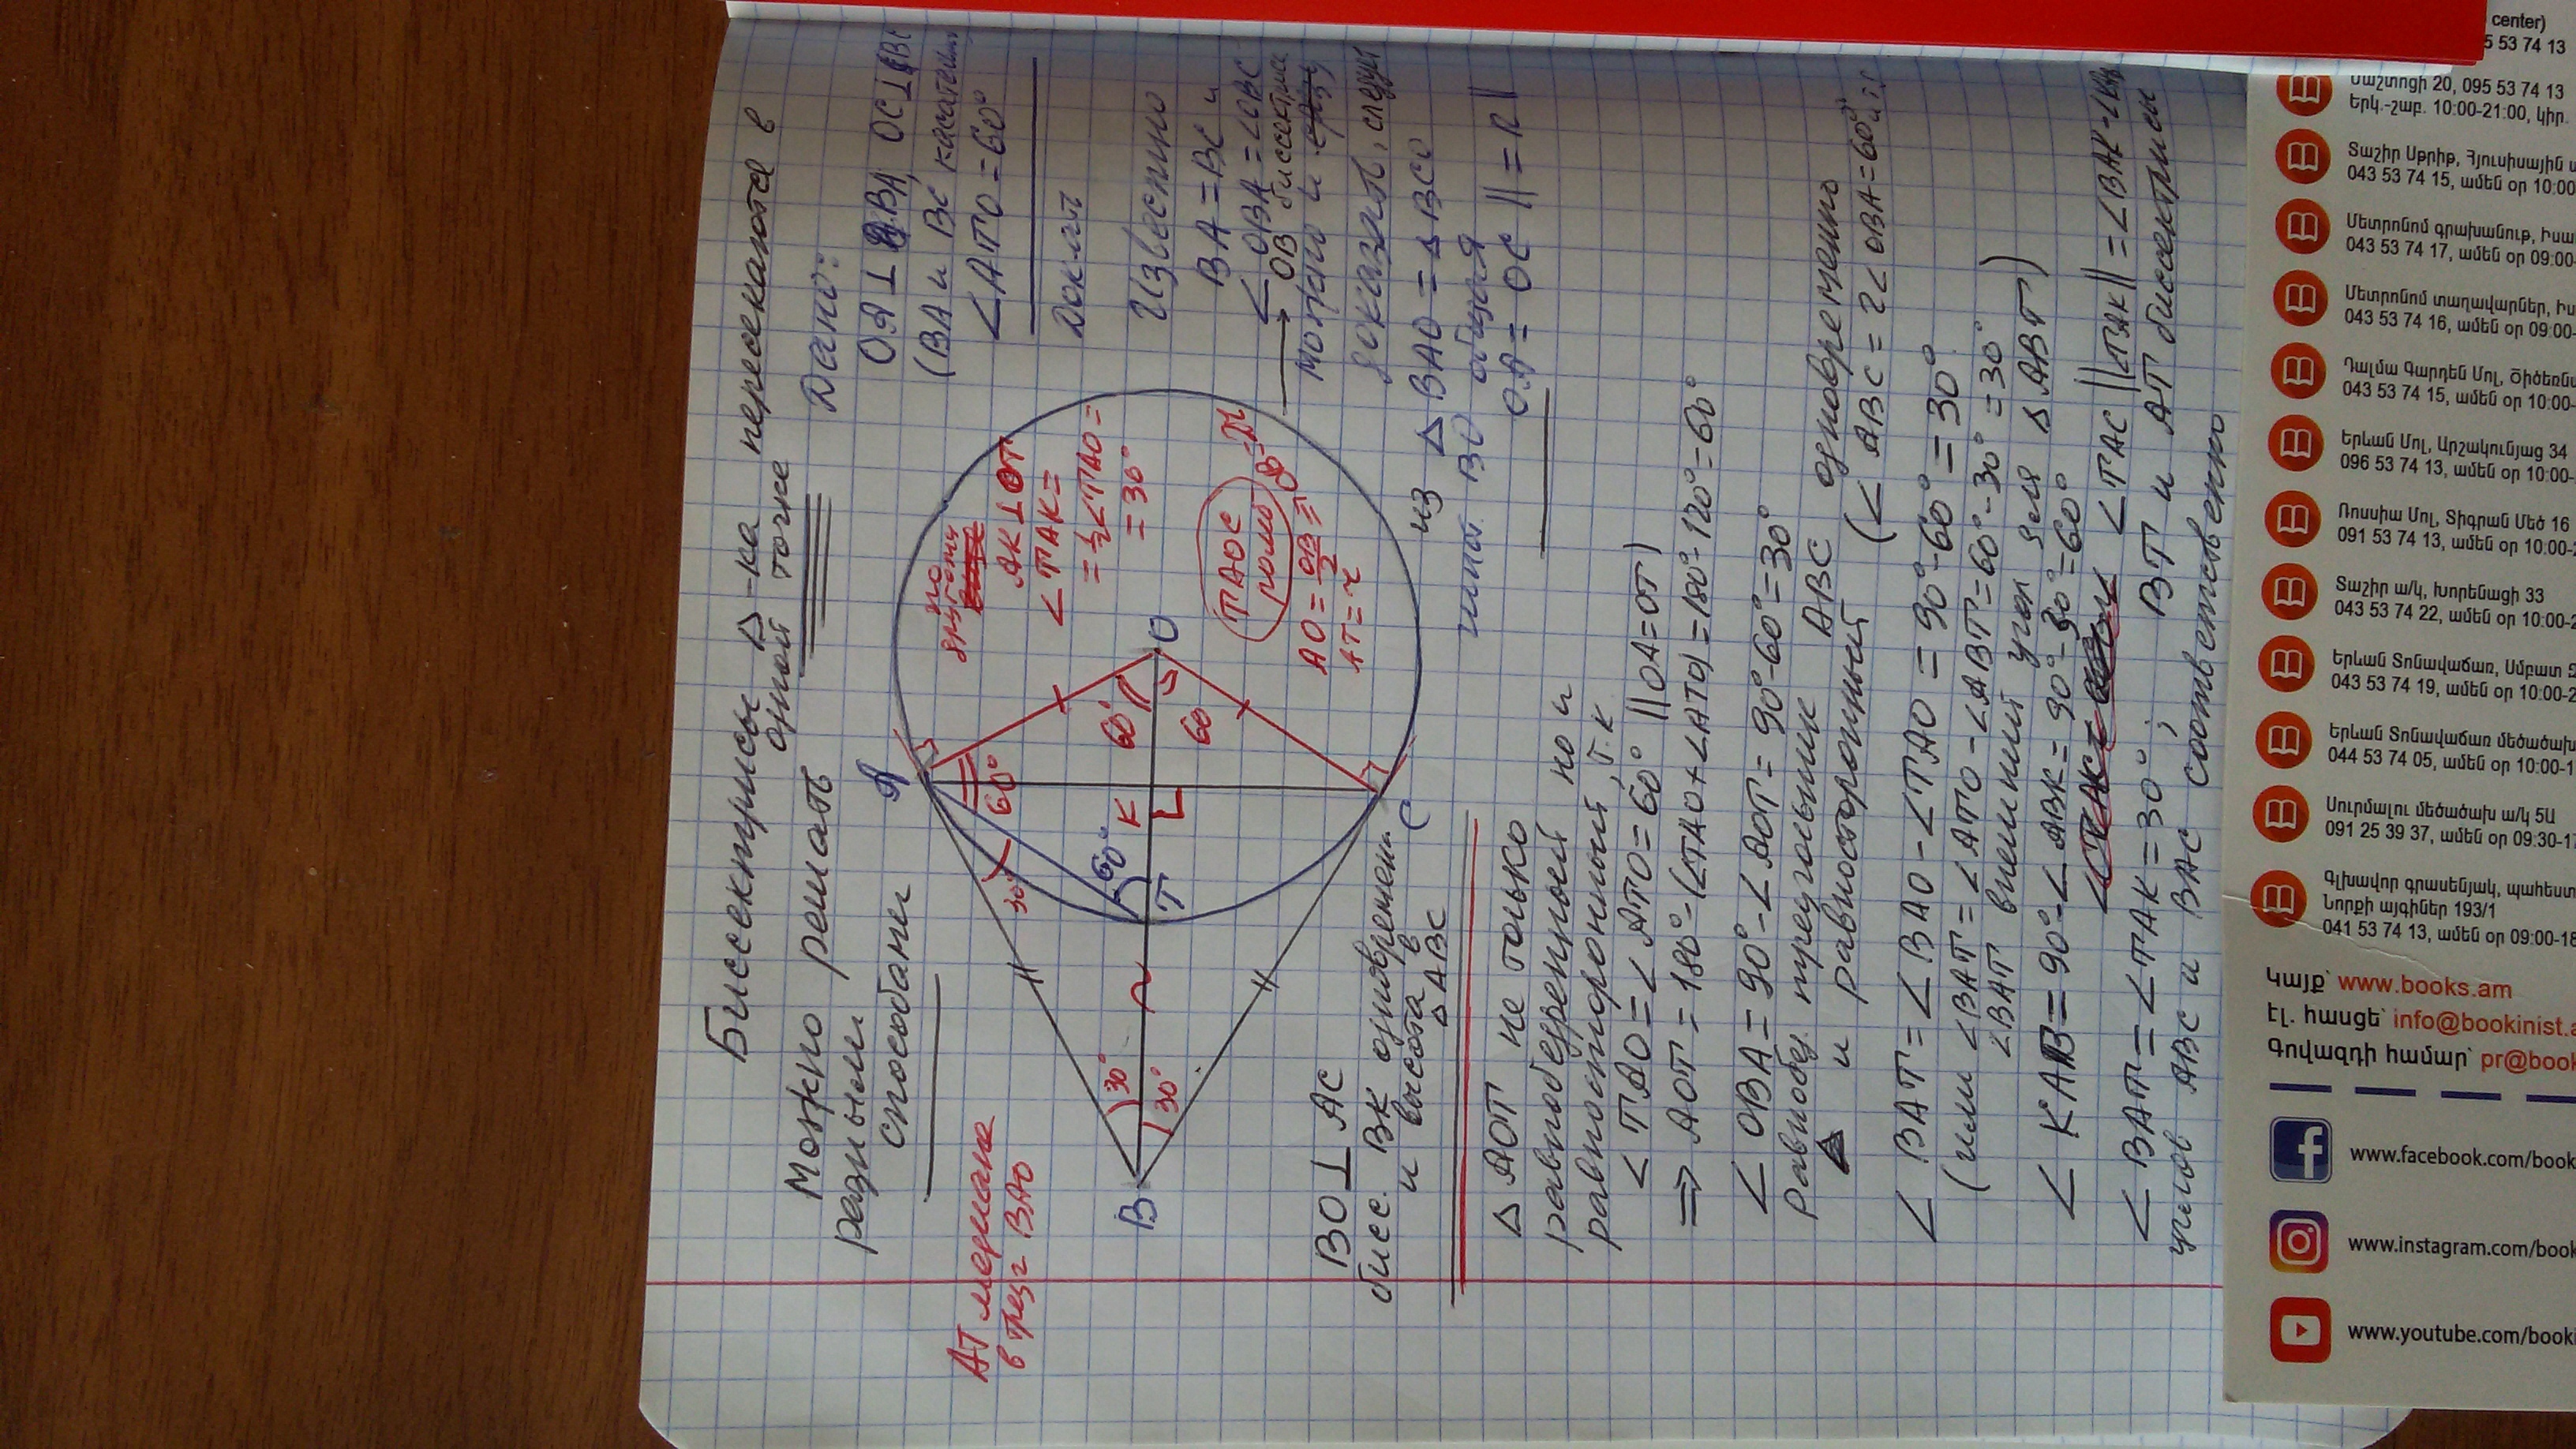 Биссектрисы Δ-ка пересекаются в
одной точке
Можно решать
разными
способами
Дано:
OA ⊥ BA, OC ⊥ BC
(BA и BC касател
∠ATO = 60°
Док-ть
Известно
BA = BC и
∠OBA = ∠OBC
→ OB биссектриса
можно и
доказать, следует
из Δ BAO = Δ BCO
BO общая
OA = OC || = R ||
AT медиана
в треуг BAO
по
другому
AK ⊥ OT
∠TAK =
= ½∠TAO =
= 30°
TAOC
ромб
AO = OB/2 =
AT = r
A
B
C
O
T
K
60°
60°
60
60°
30°
30°
30°
BO ⊥ AC
бисс. BK одновремен.
и высота в
Δ ABC
Δ AOT не только
равнобедренный но и
равносторонний, т.к
∠TAO = ∠ATO = 60° ||OA=OT)
⇒ AOT = 180°-(∠TAO+∠ATO) = 180°-120° = 60°
∠OBA = 90°-∠AOT = 90°-60° = 30°
равнобед. треугольник ABC одновременно
Δ и равносторонный (∠ABC = 2∠OBA = 60°
∠BAT = ∠BAO - ∠TAO = 90°-60° = 30°
(или ∠BAT = ∠ATO - ∠ABT = 60°-30° = 30°
∠BAT внешний угол для Δ ABT)
∠KAB = 90°-∠ABK = 90°-30° = 60°
∠TAC ||∠TAK|| = ∠BAK-∠
∠BAT = ∠TAK = 30°; BT и AT биссектрисы
углов ABC и BAC соответственно
center)
5 53 74 13
Մաշտոցի 20, 095 53 74 13
երկ.-շաբ. 10:00-21:00, կիր.
Տաշիր Սթրիթ, Հյուսիսային
043 53 74 15, ամեն օր 10:00
Մետրոնոմ գրախանութ, Իսա
043 53 74 17, ամեն օր 09:00-
Մետրոնոմ տաղավարներ, Իս
043 53 74 16, ամեն օր 09:00-
Դալմա Գարդեն Մոլ, Ծիծեռնա
043 53 74 15, ամեն օր 10:00-
Երևան Մոլ, Արշակունյաց 34
096 53 74 13, ամեն օր 10:00-
Ռոսսիա Մոլ, Տիգրան Մեծ 16
091 53 74 13, ամեն օր 10:00-2
Տաշիր ա/կ, Խորենացի 33
043 53 74 22, ամեն օր 10:00-2
Երևան Տոնավաճառ, Սմբատ Զ
043 53 74 19, ամեն օր 10:00-2
Երևան Տոնավաճառ մեծածախ
044 53 74 05, ամեն օր 10:00-1
Սուրմալու մեծածախ ա/կ 5Ա
091 25 39 37, ամեն օր 09:30-17
Գլխավոր գրասենյակ, պահեստ
Նորքի այգիներ 193/1
041 53 74 13, ամեն օր 09:00-18
Կայք՝ www.books.am
Էլ. հասցե՝ info@bookinist.a
Գովազդի համար՝ pr@book
www.facebook.com/book
www.instagram.com/book
www.youtube.com/booki